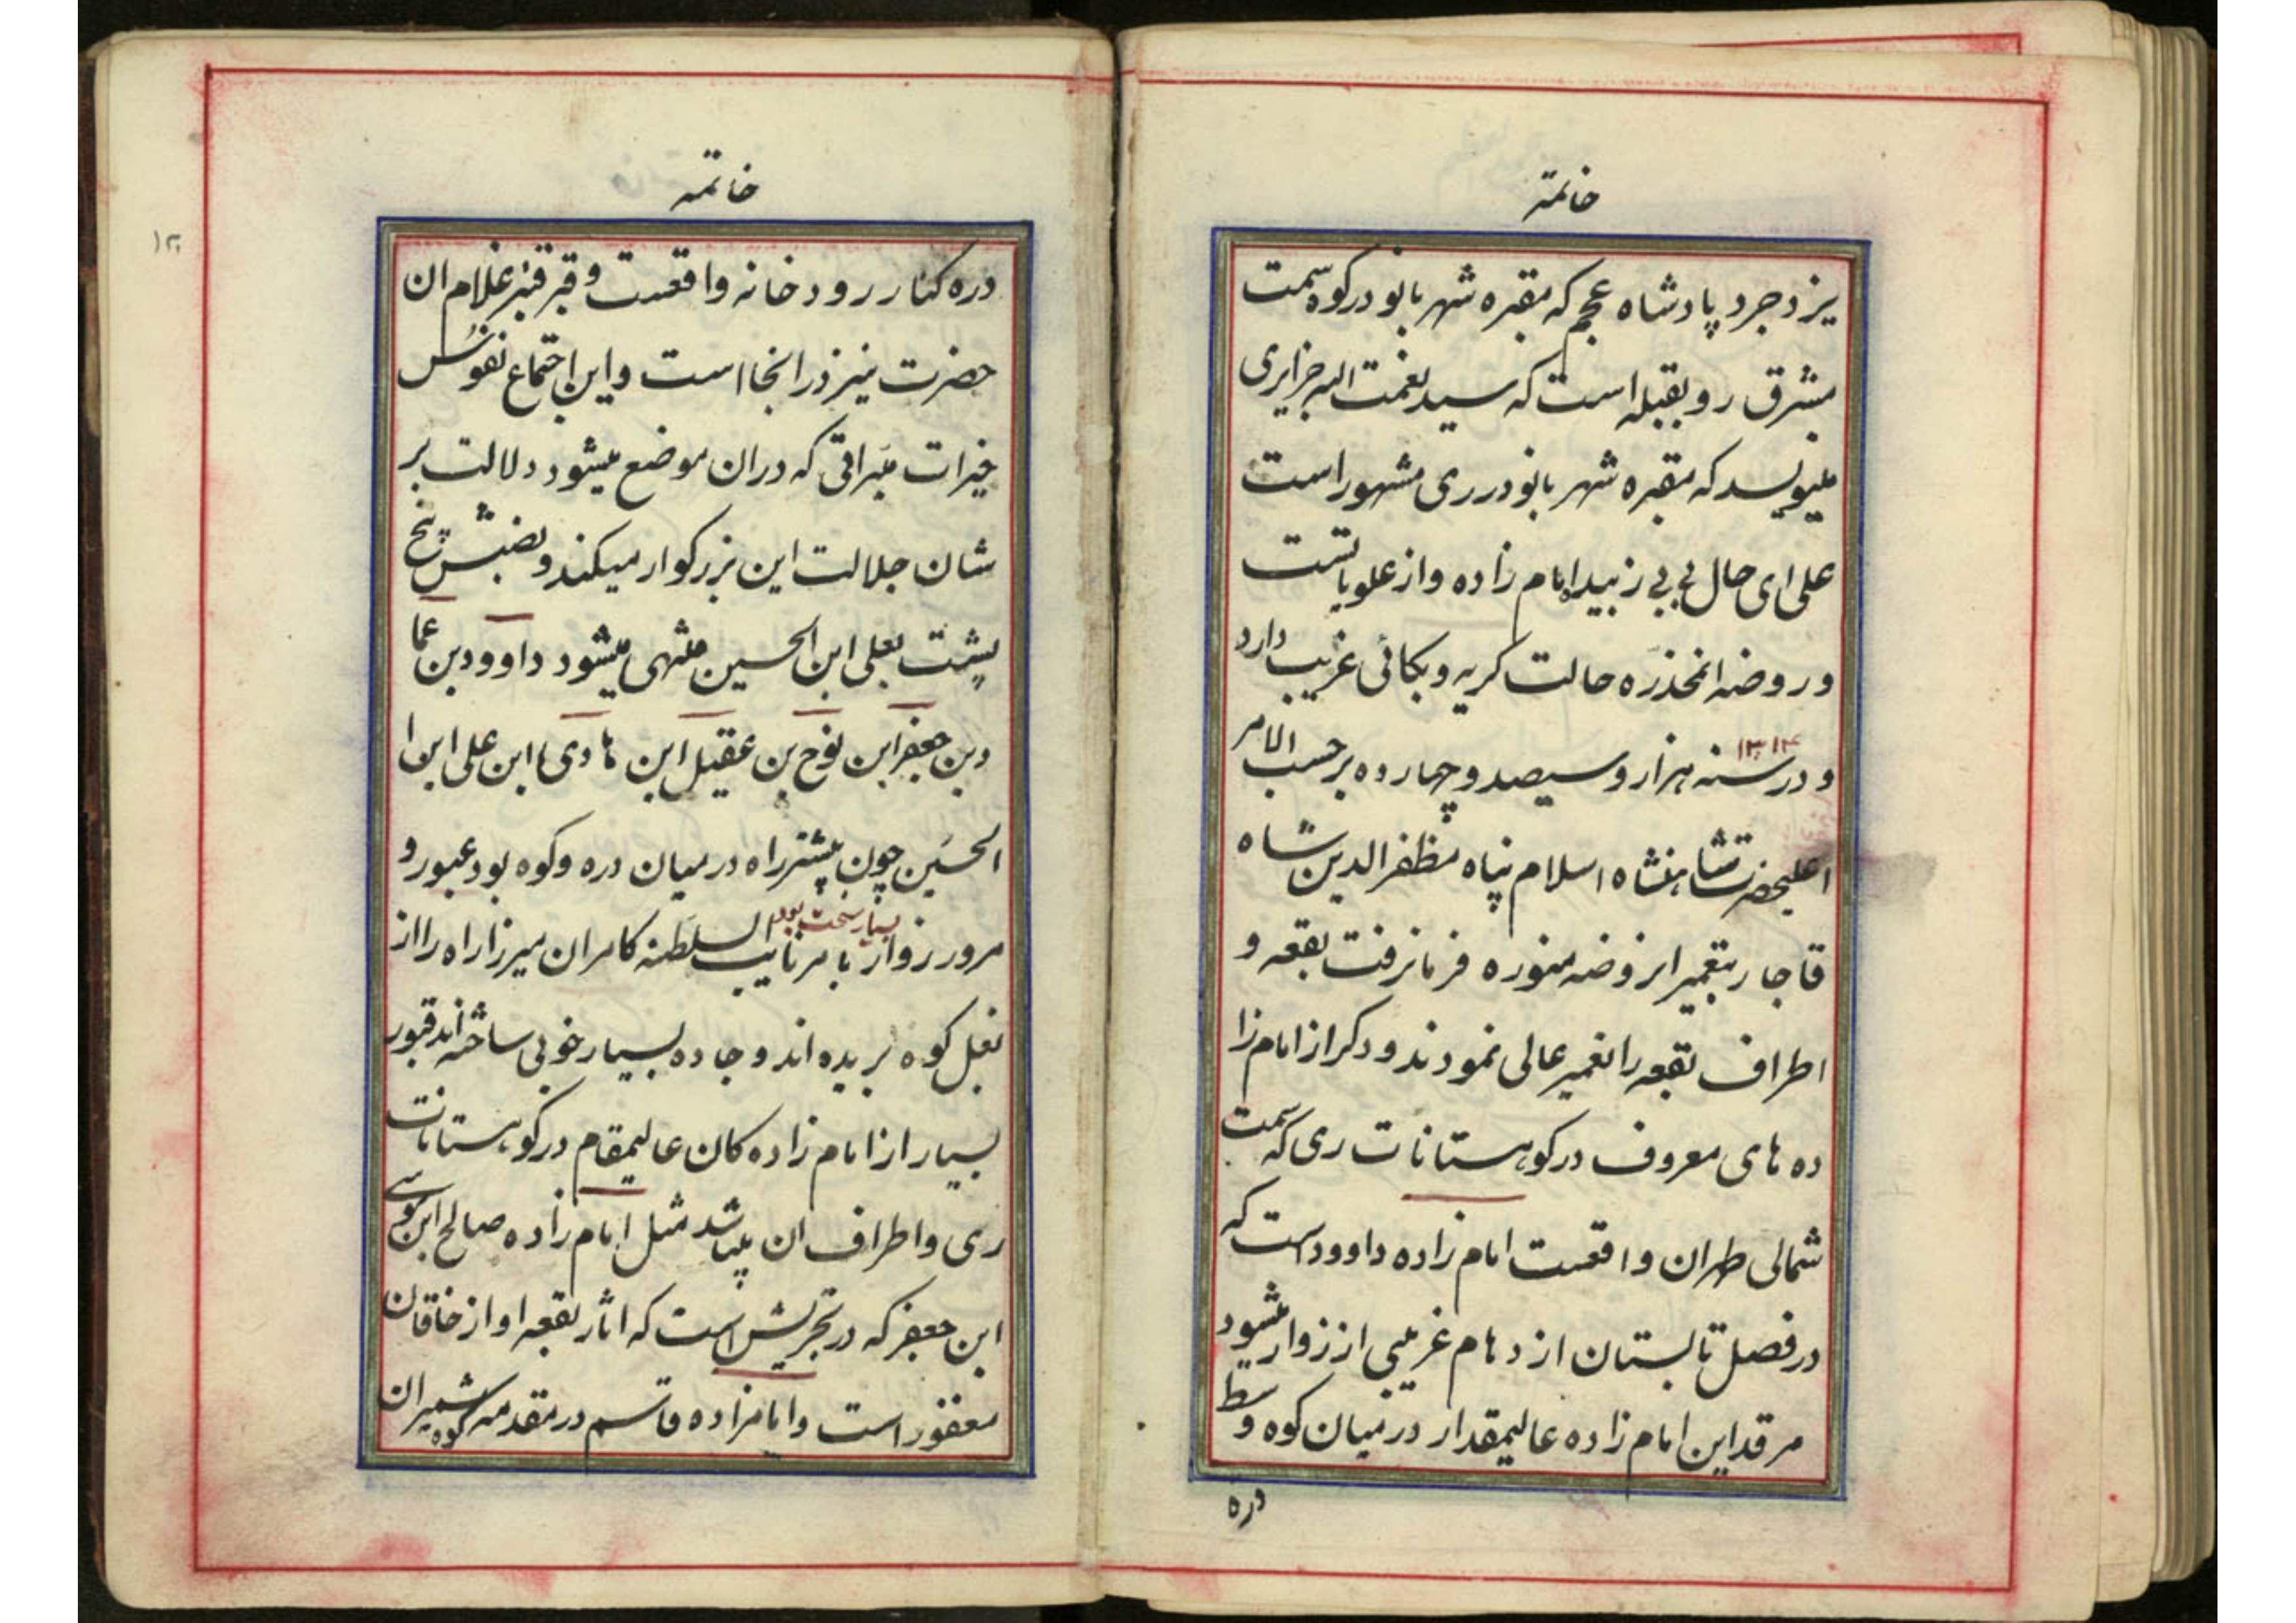 خاتمة
یزدجرد پادشاه عجم که مقبره شهربانو در کوه سمت
مشرق رو بقبله است که سید نعمت الله جزایری
مینویسد که مقبره شهربانو در ری مشهور است
علی ای حال بی بی زبیده امام زاده و از علویاتست
و روضه انمخدره حالت کریه و بکائی غریب دارد
۱۳۱۴
و در سنه هزار و سیصد و چهارده بر حسب الامر
اعلیحضرت شاهنشاه اسلام پناه مظفرالدین شاه
قاجار بتعمیر انروضه منوره فرمان رفت بقعه و
اطراف بقعه را تعمیر عالی نمودند و دکر از امام زا
ده های معروف در کوهستانات ری که سمت
شمالی طهران واقعست امام زاده داوود است که
در فصل تابستان ازدهام غریبی از زوار میشود
مرقد این امام زاده عالیمقدار در میان کوه وسط
دره
خاتمه
دره کنار رودخانه واقعست و قبر قنبر غلام ان
حضرت نیز در انجا است و این اجتماع نفوس
خیرات مبراتی که در ان موضع میشود دلالت بر
شان جلالت این بزرکوار میکند و نصبش پنج
پشت بعلی ابن الحسین منتهی میشود داوود بن عما
د بن جعفر ابن نوح بن عقیل ابن هادی ابن علی ابن ا
الحسین چون پیشتر راه در میان دره و کوه بود عبور و
بسیار سخت بود
مرور زوار بامر نایب السلطنه کامران میرزا راه را از
بغل کوه بریده اند و جاده بسیار خوبی ساخته اند قبور
بسیار از امام زاده کان عالیمقام در کوهستانات
ری و اطراف ان میباشد مثل امام زاده صالح ابن موسی
ابن جعفر که در تجریش است که اثار بقعه او از خاقان
مغفور است و امامزاده قاسم در مقدمه کوه شمیران